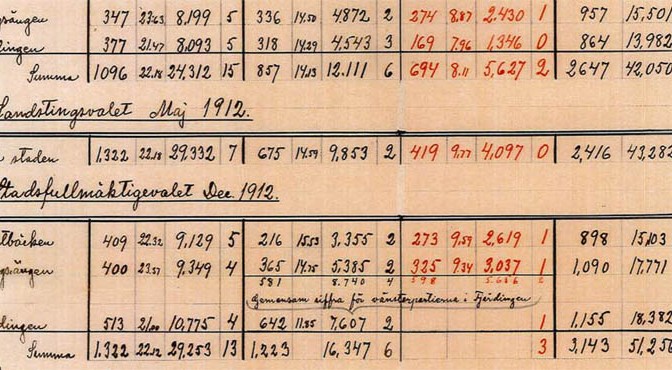 347 23.63 8,199 5 336 14.50 4872 2 274 8.87 2,430 1 957 15,501
377 21.47 8,093 5 318 14.29 4,543 3 169 7.96 1,346 0 864 13,982
Summa 1096 22.18 24,312 15 857 14.13 12.111 6 694 8.11 5,627 2 2647 42,050
Landstingsvalet Maj 1912.
staden 1,322 22.18 29,332 7 675 14.59 9,853 2 419 9.77 4,097 0 2,416 43,282
Stadsfullmäktigevalet Dec. 1912.
409 22.32 9,129 5 216 15.53 3,355 2 273 9.59 2,619 1 898 15,103
400 23.37 9,349 4 365 14.75 5,385 2 325 9.34 3,037 1 1,090 17,771
581 8.740 4 598 5.656
Gemensam siffra för vänsterpartierna i Fjerdingen
513 10,775 4 642 11.85 7,607 2 1 1,155 18,382
Summa 1.322 22.12 29,253 13 1,223 16,347 6 3 3,143 51,256